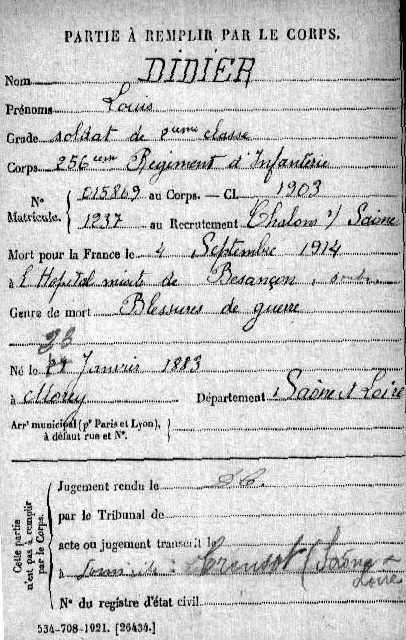 PARTIE À REMPLIR PAR LE CORPS.
Nom DIDIER
Prénoms Louis
Grade soldat de 2eme classe
Corps 256eme Régiment d'Infanterie
N° Matricule. { 015869 au Corps. — Cl. 1903
1237 au Recrutement Chalons s/ Saône
Mort pour la France le 4 Septembre 1914
à l'Hopital mixte de Besançon, Doubs
Genre de mort Blessures de guerre
23
Né le Janvier 1883
à Morey Département Saône et Loire
Arrt municipal (pr Paris et Lyon), à défaut rue et N°.
Cette partie n'est pas à remplir par le Corps.
Jugement rendu le
par le Tribunal de
acte ou jugement transcrit le
à Creusot (Saône & Loire
N° du registre d'état civil
534-708-1921. [26434.]